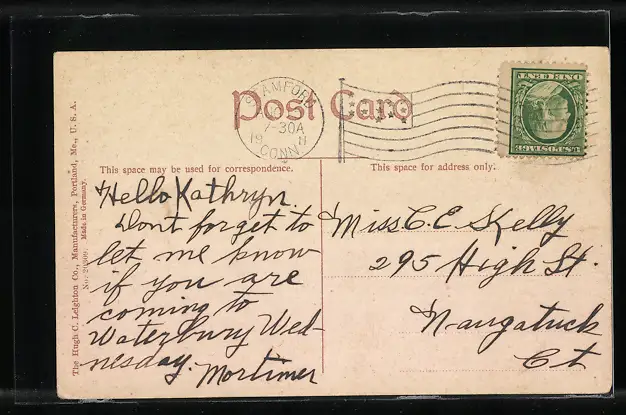 Post Card
STAMFORD
7-30A
19
CONN
U.S. POSTAGE
ONE CENT
This space may be used for correspondence.
This space for address only.
Hello Kathryn.
Dont forget to
let me know
if you are
coming to
Waterbury Wed-
nesday.
Mortimer
Miss C. E. Skelly
295 High St.
Naugatuck
Ct
The Hugh C. Leighton Co., Manufacturers, Portland, Me., U. S. A.
Made in Germany.